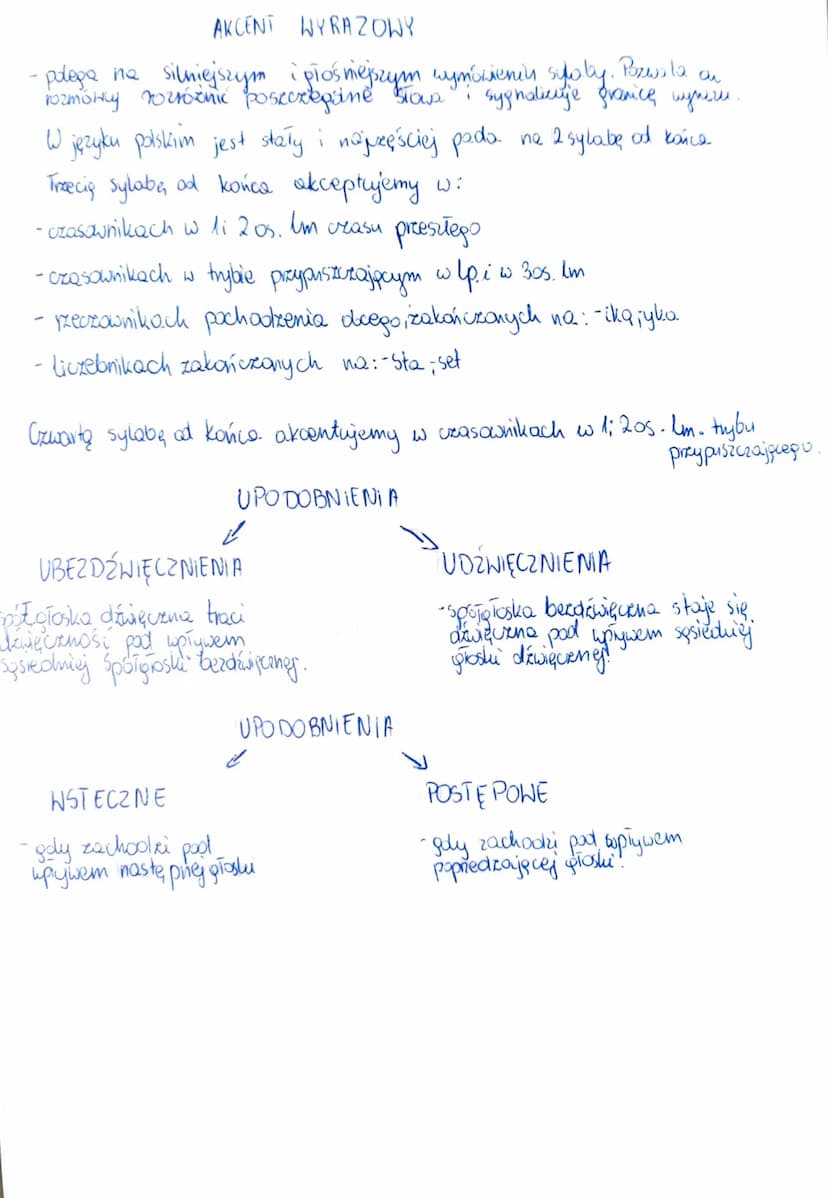 AKCENT WYRAZOWY
- polega na silniejszym i głośniejszym wymówieniu sylaby. Pozwala on
rozmówcy rozróżnić poszczególne słowa i sygnalizuje granicę wyrazu.
W języku polskim jest stały i najczęściej pada na 2 sylabę od końca
Trzecią sylabę od końca akceptujemy w:
- czasownikach w 1 i 2 os. lm czasu przeszłego
- czasownikach w trybie przypuszczającym w lp. i w 3 os. lm
- rzeczownikach pochodzenia obcego, zakończonych na: -ika, yka
- liczebnikach zakończonych na: -sta, -set
Czwartą sylabę od końca akcentujemy w czasownikach w 1 i 2 os. lm. trybu
przypuszczającego.
UPODOBNIENIA
UBEZDŹWIĘCZNIENIA UDŹWIĘCZNIENIA
spółgłoska dźwięczna traci
dźwięczność pod wpływem
sąsiedniej spółgłoski bezdźwięcznej.
- spółgłoska bezdźwięczna staje się
dźwięczna pod wpływem sąsiedniej
głoski dźwięcznej.
UPODOBNIENIA
WSTECZNE POSTĘPOWE
- gdy zachodzi pod
wpływem następnej głoski
- gdy zachodzi pod wpływem
poprzedzającej głoski.